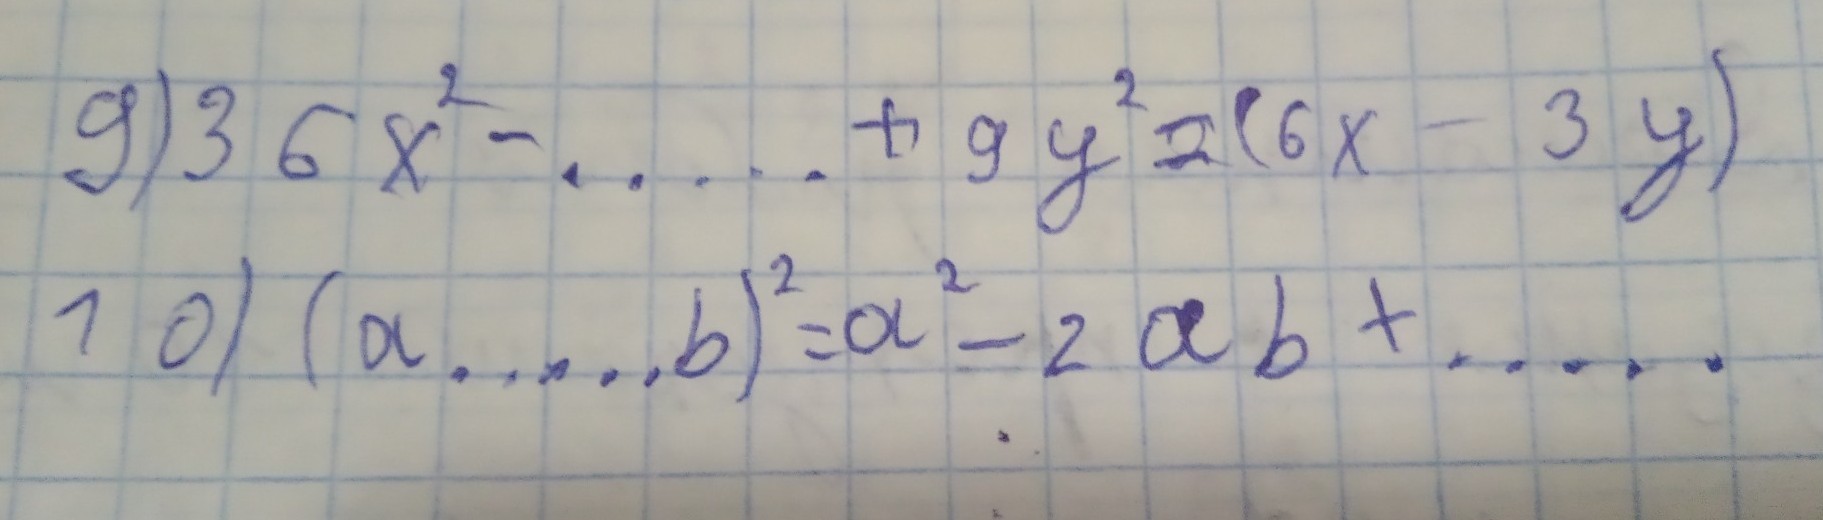 9) 36x² - ..... + 9y² = (6x - 3y)
10) (a ..... b)² = a² - 2ab + .....